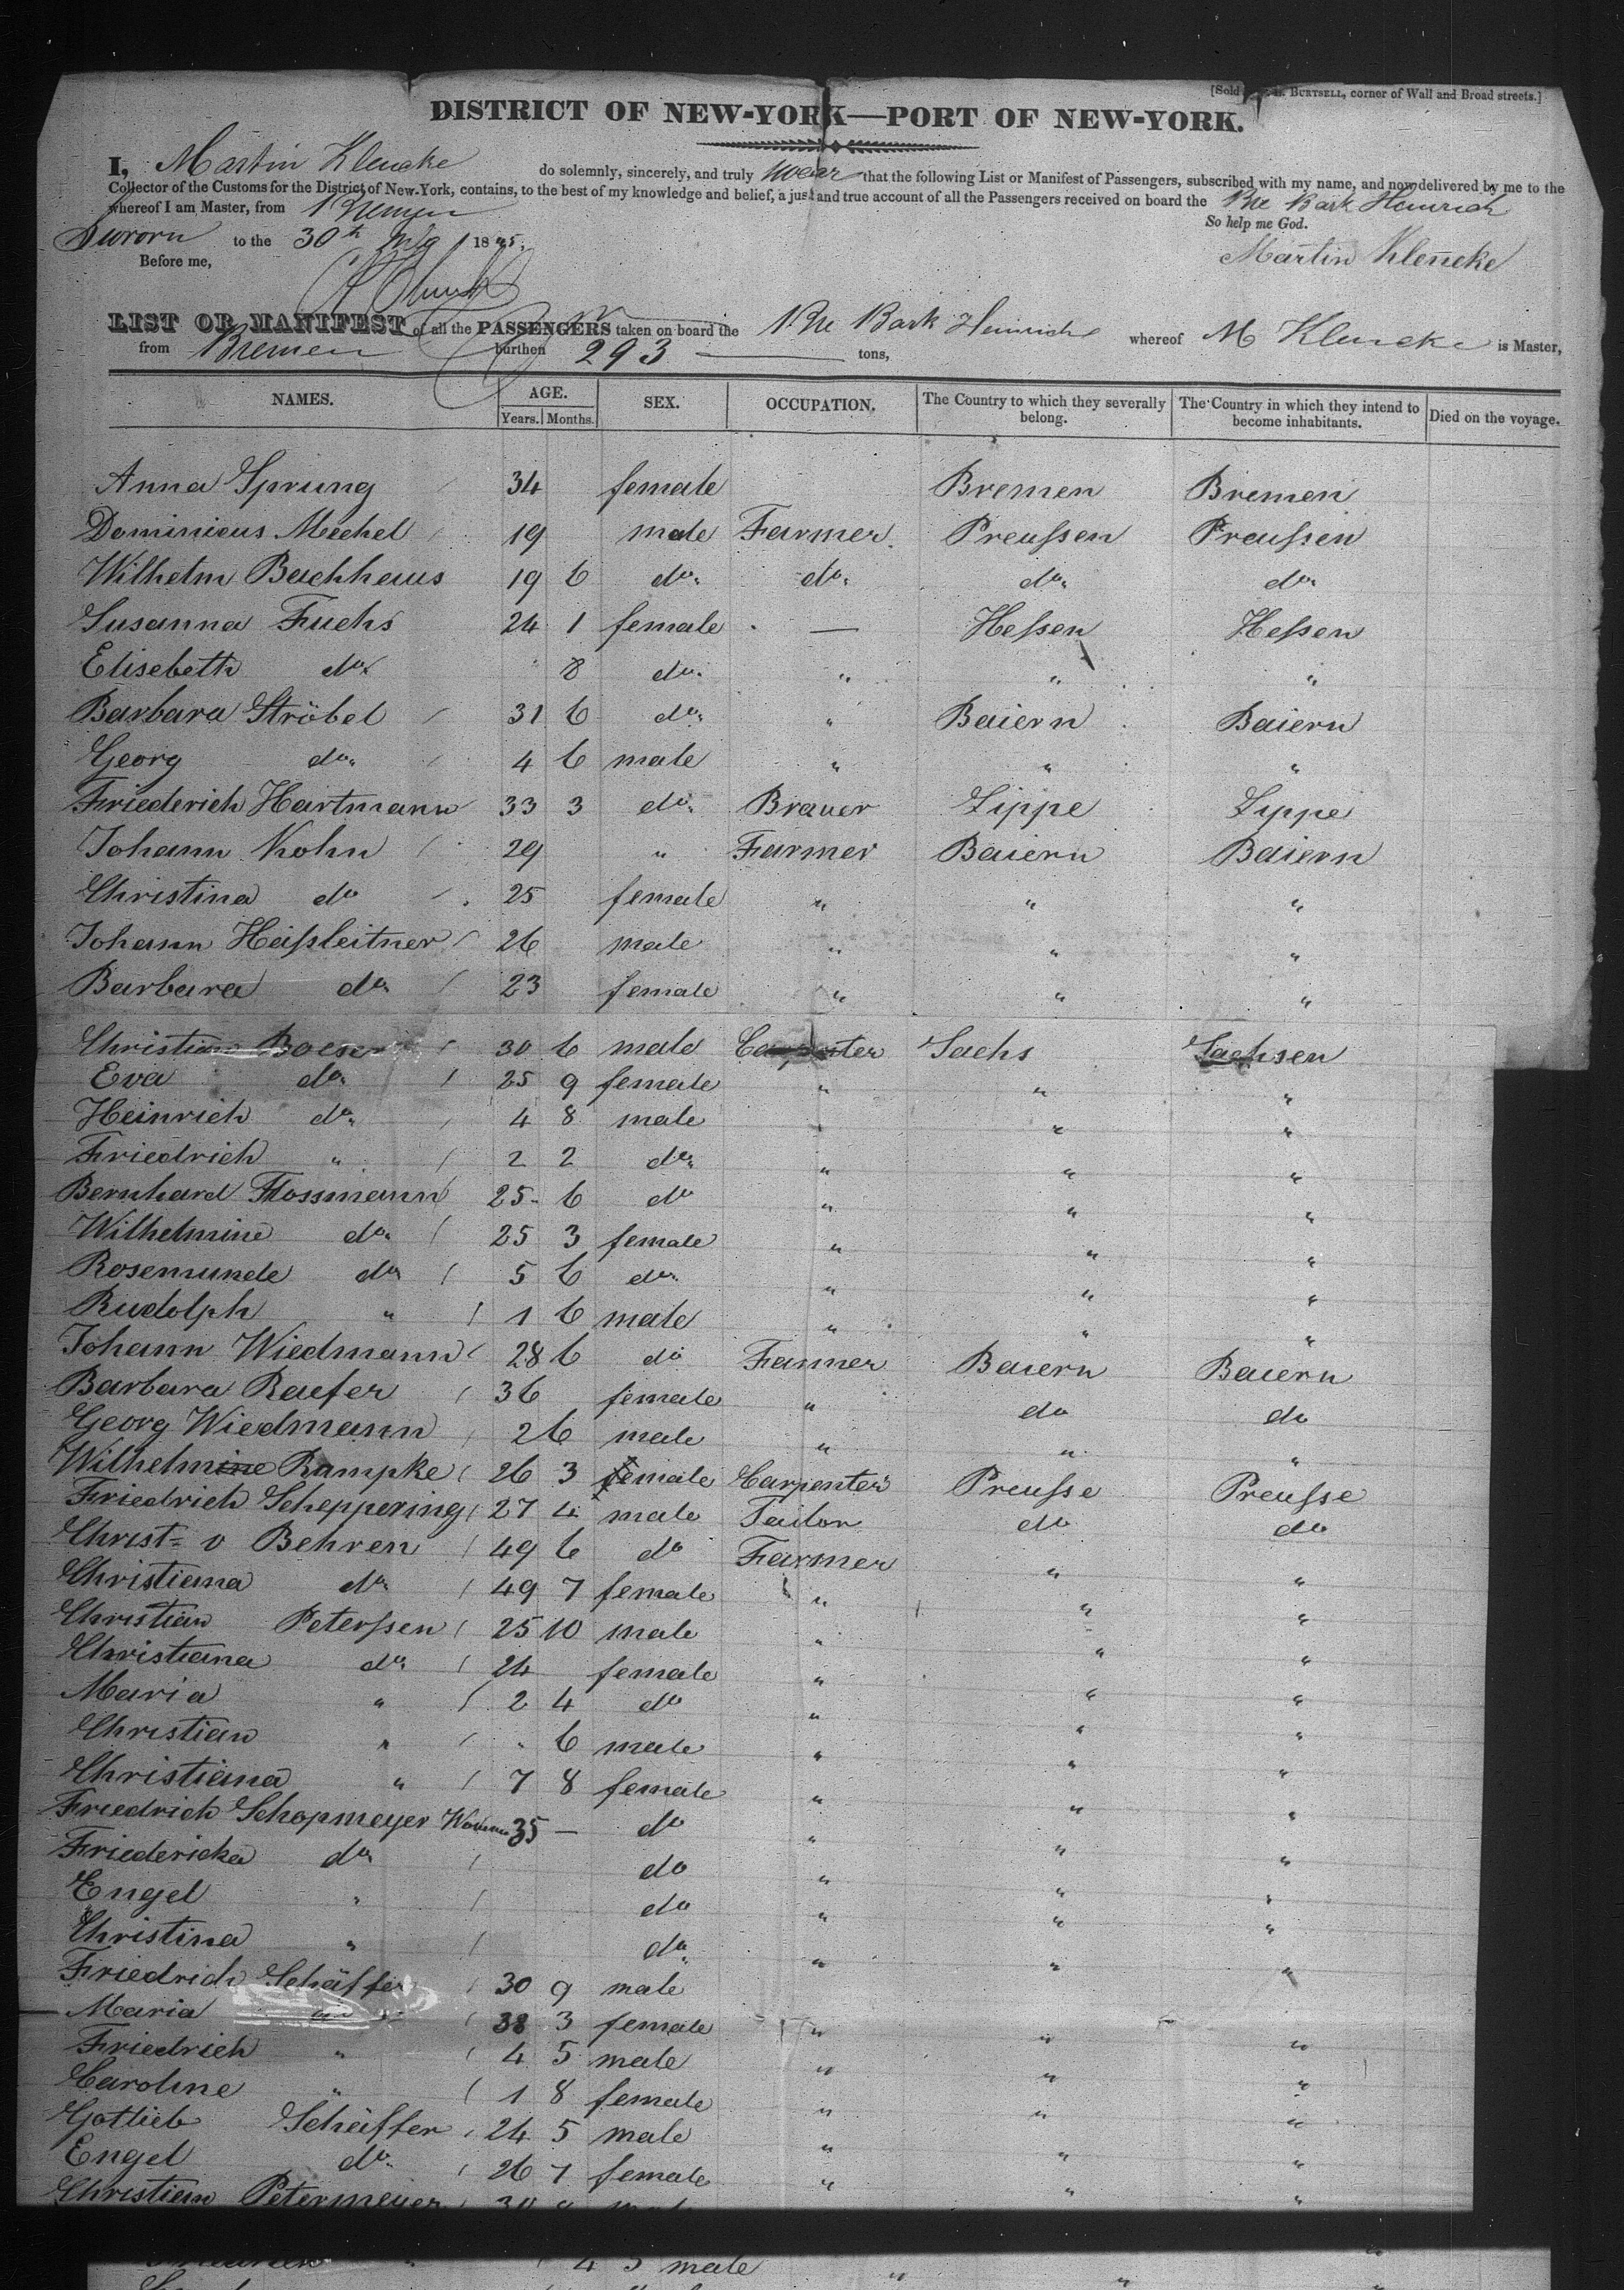 [Sold L. BURTSELL, corner of Wall and Broad streets.]
DISTRICT OF NEW-YORK—PORT OF NEW-YORK.
I, Martin Klencke do solemnly, sincerely, and truly swear that the following List or Manifest of Passengers, subscribed with my name, and now delivered by me to the
Collector of the Customs for the District of New-York, contains, to the best of my knowledge and belief, a just and true account of all the Passengers received on board the Bre Bark Heinrich
whereof I am Master, from Bremen
So help me God.
Sworn to the 30th 1845.
Martin Klencke
Before me,
LIST OR MANIFEST of all the PASSENGERS taken on board the Bre Bark Heinrich whereof M Klencke is Master,
from Bremen burthen 293 tons,
NAMES. AGE. SEX. OCCUPATION. The Country to which they severally belong. The Country in which they intend to become inhabitants. Died on the voyage.
Years. Months.
Anna Sprung 34 female Bremen Bremen
Dominicus Mechel 19 male Farmer Preussen Preussen
Wilhelm Backhaus 19 6 do. do. do. do.
Susanna Fuchs 24 1 female — Hessen Hessen
Elisebeth do. " 8 do. " " "
Barbara Ströbel 31 6 do. " Baiern Baiern
Georg do. 4 6 male " " "
Friederich Hartmann 33 3 do. Brauer Lippe Lyppe
Johann Kohn 29 " Farmer Baiern Baiern
Christina do 25 female " " "
Johann Heissleitner 26 male " " "
Barbara do. 23 female " " "
Christian Boeser 30 6 male Carpenter Sachs Sachsen
Eva do. 25 9 female " " "
Heinrich do. 4 8 male " " "
Friedrich " 2 2 do. " " "
Bernhard Flossmann 25 6 do " " "
Wilhelmine do. 25 3 female " " "
Rosemunde do. 5 6 do. " " "
Rudolph " 1 6 male " " "
Johann Wiedmann 28 6 do Farmer Baiern Baiern
Barbara Raefer 36 female " do do
Georg Wiedmann 2 6 male " " "
Wilhelmine Rampke 26 3 female Carpenter Preusse Preusse
Friedrich Scheppering 27 4 male Tailor do do
Christ= v Behren 49 6 do Farmer " "
Christiana do. 49 7 female " " "
Christian Peterssen 25 10 male " " "
Christiana do. 24 female " " "
Maria " 2 4 do " " "
Christian " " 6 male " " "
Christiana " 7 8 female " " "
Friedrich Schopmeyer 35 — do " " "
Friedericka do. do " " "
Engel " do " " "
Christina " do. " " "
Friedrich Schäffer 30 9 male
Maria do 38 3 female " " "
Friedrich " 4 5 male " " "
Caroline " 1 8 female " " "
Gottlieb Schäffer 24 5 male " " "
Engel do. 26 7 female " " "
Christian Petermeyer 30
4 5 male